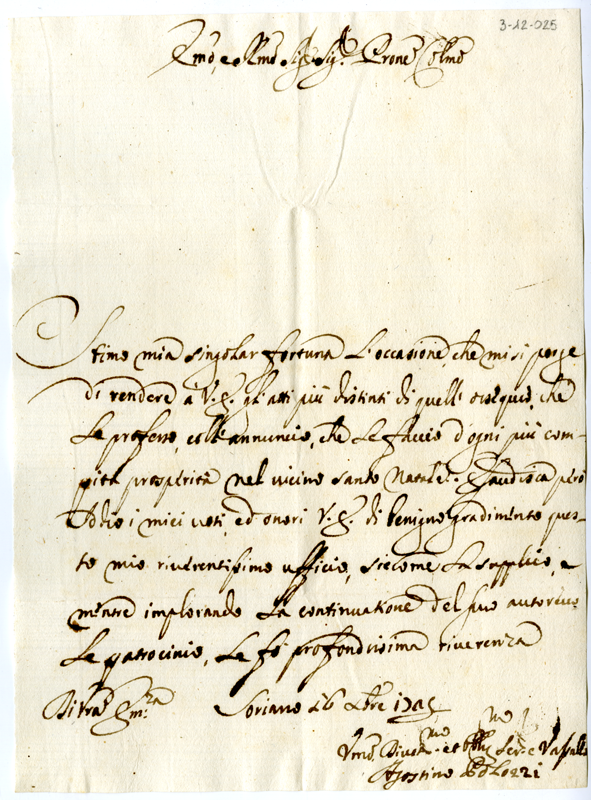 3-12-025
Em̃o, e Rm̃o Sig.r Sig.r Prone Colmo
Stimo mia singolar fortuna l'occasione, che mi si porge
di rendere à V. E. gl'atti più distinti di quell'ossequio, che
Le professo, coll'annuncio, che Le faccio d'ogni più com-
pita prosperità nel vicino santo Natale. Esaudisca però
Iddio i miei voti, ed onori V. E. di benigno gradimento ques-
to mio riverentissimo ufficio, siccome La supplico, e
mentre implorando la continuatione del suo autorevo
le patrocinio, Le fò profondissima riverenza
Di Vra Em.za
Soriano 16 Xbre
Vmo Divotmo et Obblmo Serre Vassallo
Agostino